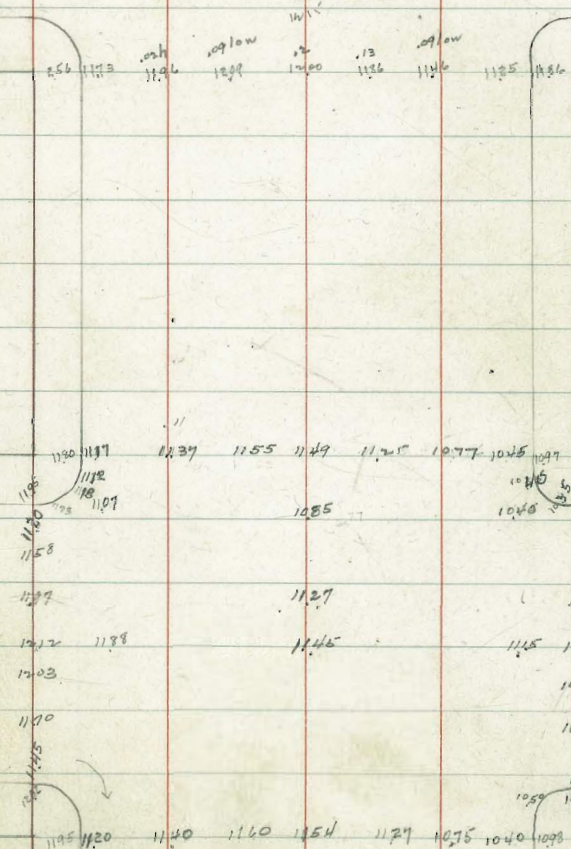 .02h .09 low .2 .13 .09 low
256 1173 1196 1209 1200 1186 1146 1135 1186
11
1180 1117 1137 1155 1149 1125 1077 1045 1097
1112
1195 1118
1107
1120 1085 1040
1158
1127
1212 1188 1145 1115
1203
1170
1145
1050
1195 1120 1140 1160 1154 1127 1075 1040 1098